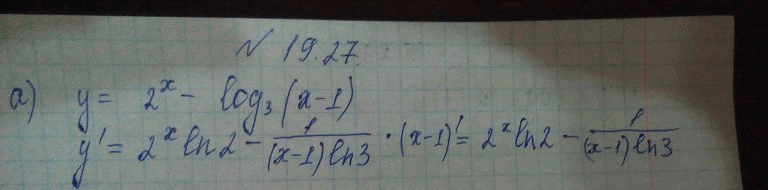 № 19.27.
а) y = 2^x - log₃(x-1)
y' = 2^x ln2 - 1/((x-1) ln3) · (x-1)' = 2^x ln2 - 1/((x-1) ln3)